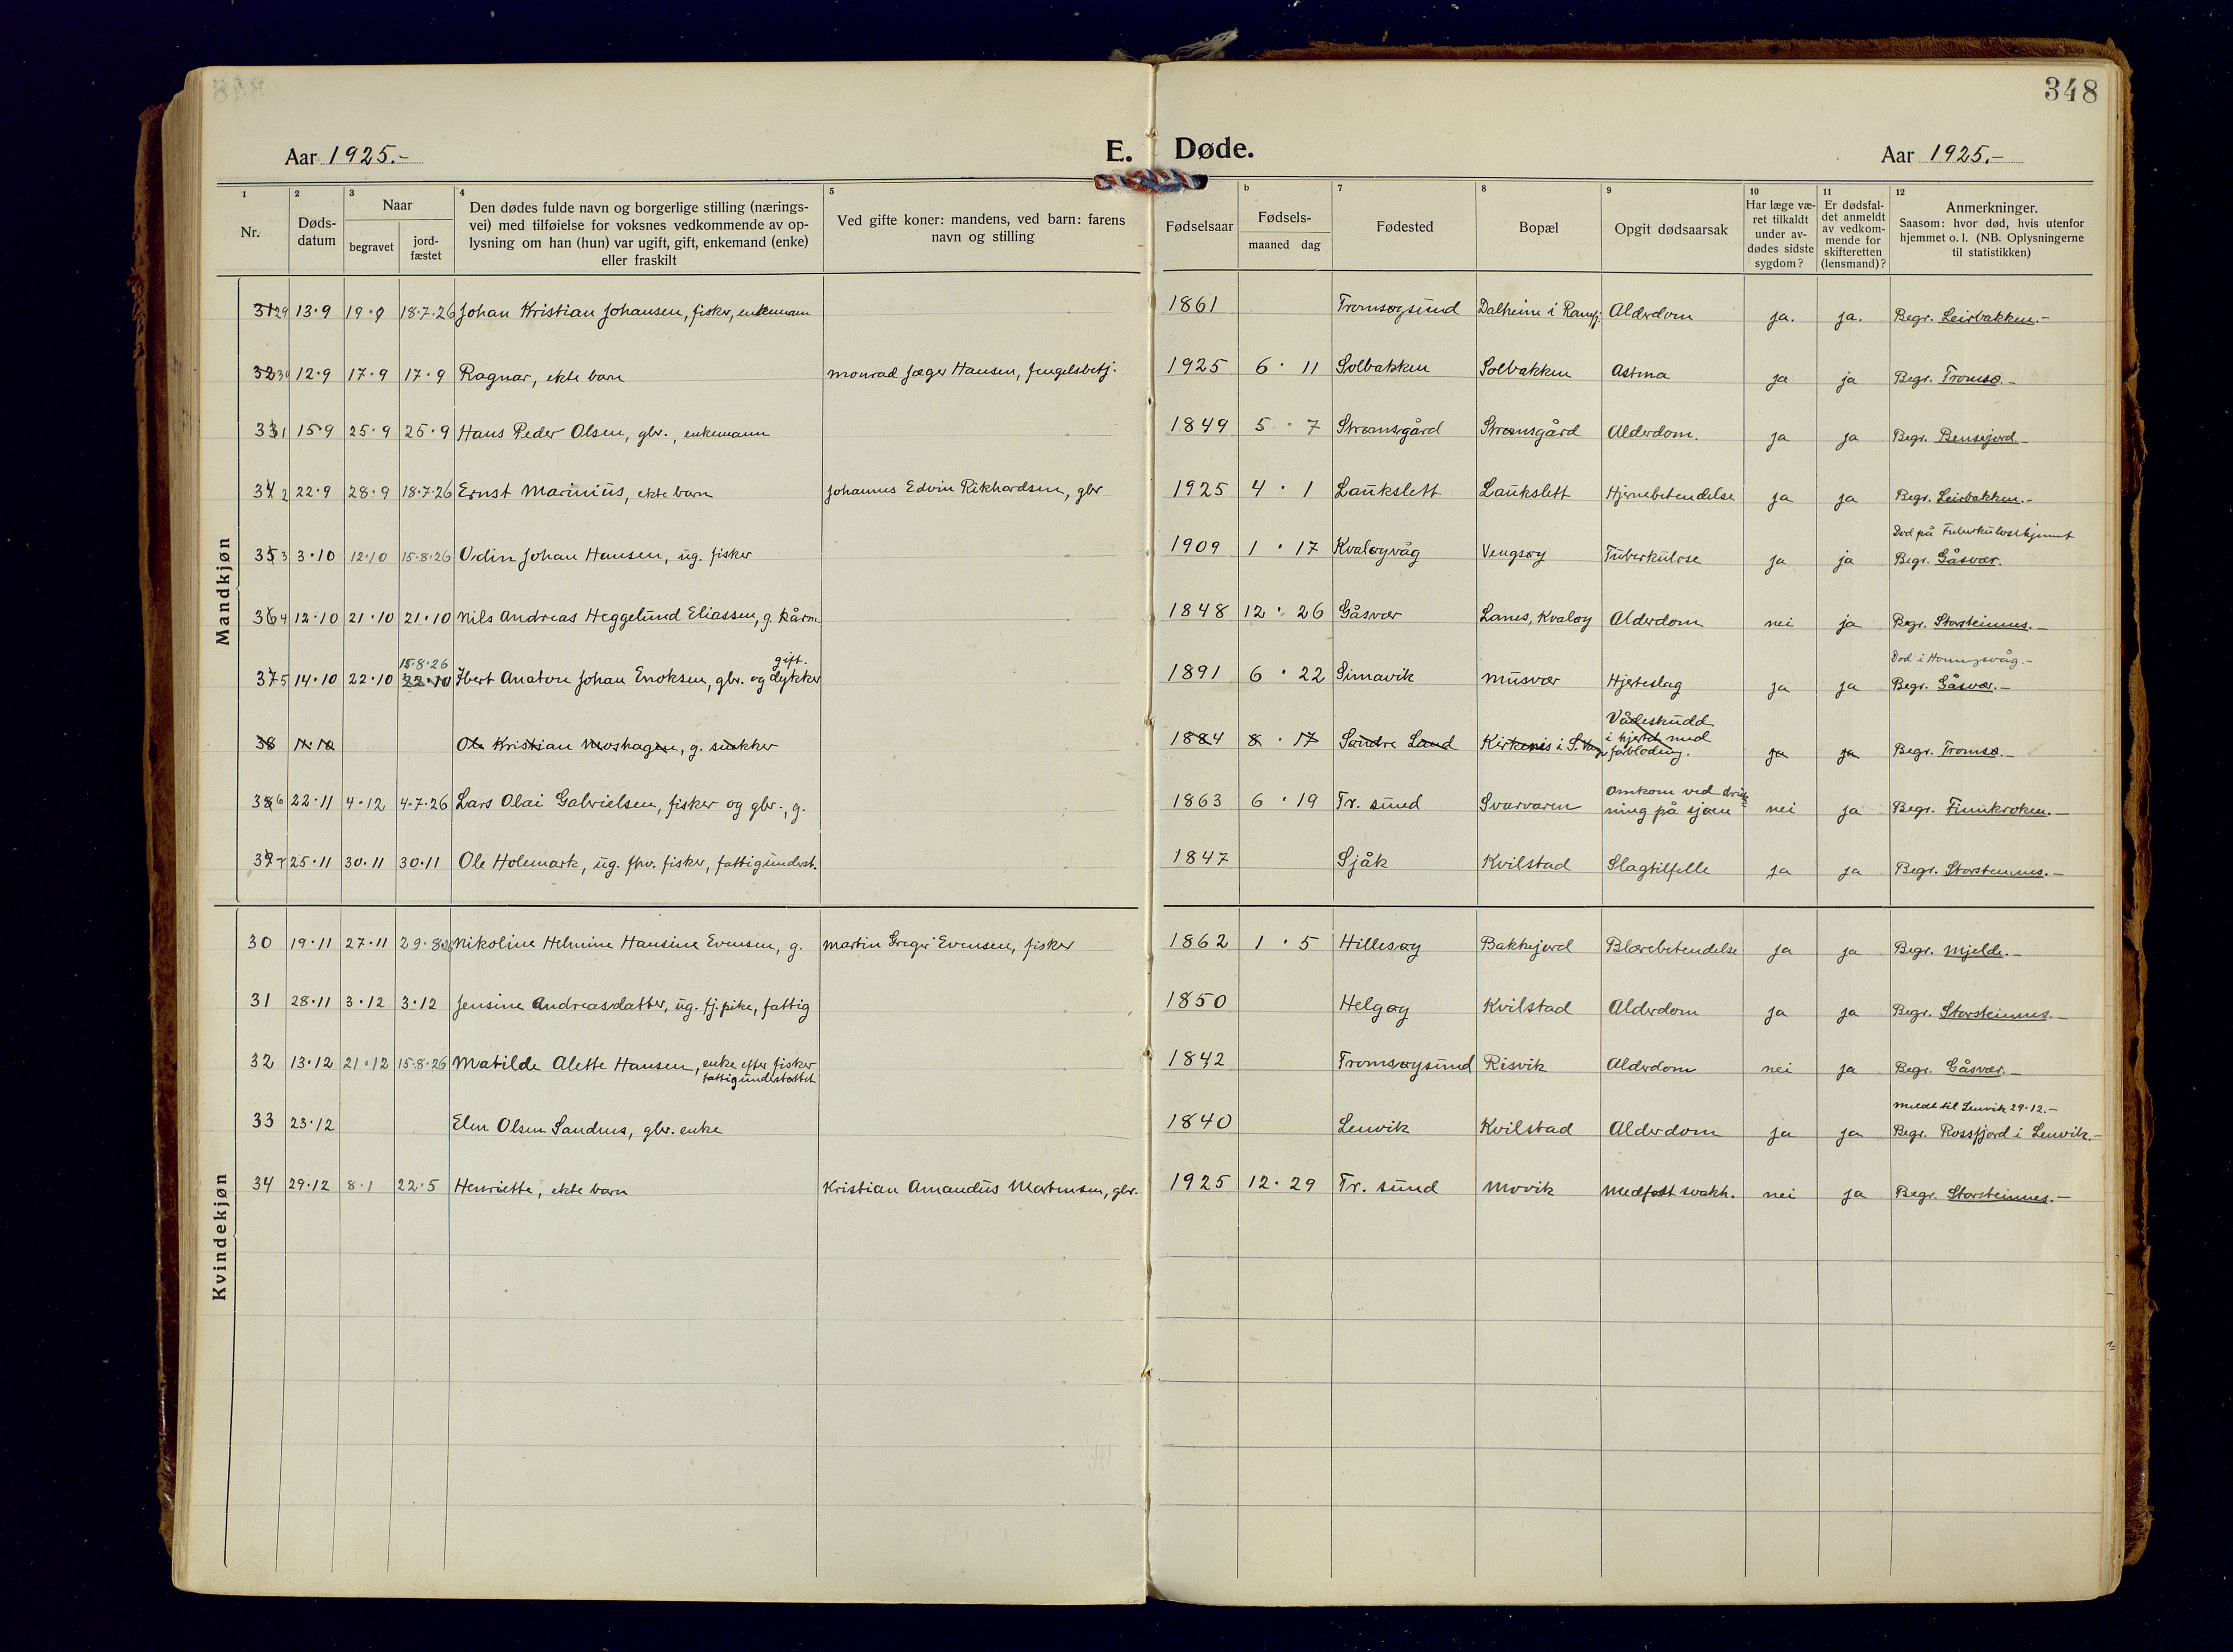 348
Aar 1925.-
E. Døde.
Aar 1925.-
1 2 3 4 5 b 7 8 9 10 11 12
Nr.
Døds-
datum
Naar
begravet
jord-
fæstet
Den dødes fulde navn og borgerlige stilling (nærings-
vei) med tilføielse for voksnes vedkommende av op-
lysning om han (hun) var ugift, gift, enkemand (enke)
eller fraskilt
Ved gifte koner: mandens, ved barn: farens
navn og stilling
Fødselsaar
Fødsels-
maaned dag
Fødested
Bopæl
Opgit dødsaarsak
Har læge væ-
ret tilkaldt
under av-
dødes sidste
sygdom?
Er dødsfal-
det anmeldt
av vedkom-
mende for
skifteretten
(lensmand)?
Anmerkninger.
Saasom: hvor død, hvis utenfor
hjemmet o. l. (NB. Oplysningerne
til statistikken)
Mandkjøn
31 29 13·9 19·9 18·7·26 Johan Kristian Johansen, fisker, enkemann 1861 Tromsøysund Dalheim i Ramfj. Alderdom ja. ja. Begr. Leirbakken.-
32 30 12·9 17·9 17·9 Ragnar, ekte barn Monrad Jæger Hansen, fengelsbetj. 1925 6·11 Solbakken Solbakken Astma ja ja Begr. Tromsø.-
331 15·9 25·9 25·9 Hans Peder Olsen, gbr., enkemann 1849 5·7 Strømsgård Strømsgård Alderdom. ja ja Begr. Bensejord-
34 2 22·9 28·9 18·7·26 Ernst Marinius, ekte barn Johannes Edvin Rikhardsen, gbr 1925 4·1 Laukslett Laukslett Hjernebetendelse ja ja Begr. Leirbakken.-
Død på Tuberkulosehjemmet
35 3 3·10 12·10 15·8·26 Odin Johan Hansen, ug. fisker 1909 1·17 Kvaløyvåg Vengsøy Tuberkulose ja ja Begr. Gåsvær.
36 4 12·10 21·10 21·10 Nils Andreas Heggelund Eliassen, g. kårm. 1848 12·26 Gåsvær Lanes, Kvaløy Alderdom nei ja Begr. Storsteinnes.-
15·8·26 gift. Død i Honngsvåg.-
37 5 14·10 22·10 22·10 Ibert Anaton Johan Enoksen, gbr. og dykker 1891 6·22 Simavik Musvær Hjerteslag ja ja Begr. Gåsvær.-
Vådeskudd
38 11·10 Ole Kristian Moshagen, g. snekker 1884 8·17 Søndre Land Kirkenes i S. Var. i hjertet med
forblødning. ja ja Begr. Tromsø.-
38 6 22·11 4·12 4·7·26 Lars Olai Gabrielsen, fisker og gbr., g. 1863 6·19 Tr. sund Svarvaren Omkom ved druk-
ning på sjøen nei ja Begr. Finnkroken.-
39 7 25·11 30·11 30·11 Ole Holemark, ug. fhv. fisker, fattigunderst. 1847 Sjåk Kvilstad Slagtilfelle ja ja Begr. Storsteinnes.-
Kvindekjøn
30 19·11 27·11 29·8·26 Nikoline Helmine Hansine Evensen, g. Martin Greger Evensen, fisker 1862 1·5 Hillesøy Bakkejord Blærebetendelse ja ja Begr. Mjelde.-
31 28·11 3·12 3·12 Jensine Andreasdatter, ug. tj. pike, fattig 1850 Helgøy Kvilstad Alderdom ja ja Begr. Storsteinnes.-
32 13·12 21·12 15·8·26 Matilde Alette Hansen, enke efter fisker
fattigunderstøttet 1842 Tromsøysund Risvik Alderdom nei ja Begr. Gåsvær.-
Meldt til Lenvik 29·12.-
33 23·12 Elen Olsen Sandnes, gbr. enke 1840 Lenvik Kvilstad Alderdom ja ja Begr. Rossfjord i Lenvik.-
34 29·12 8·1 22·5 Henriette, ekte barn Kristian Amandus Martinsen, gbr. 1925 12·29 Tr. sund Movik Medfødt svakh. nei ja Begr. Storsteinnes.-